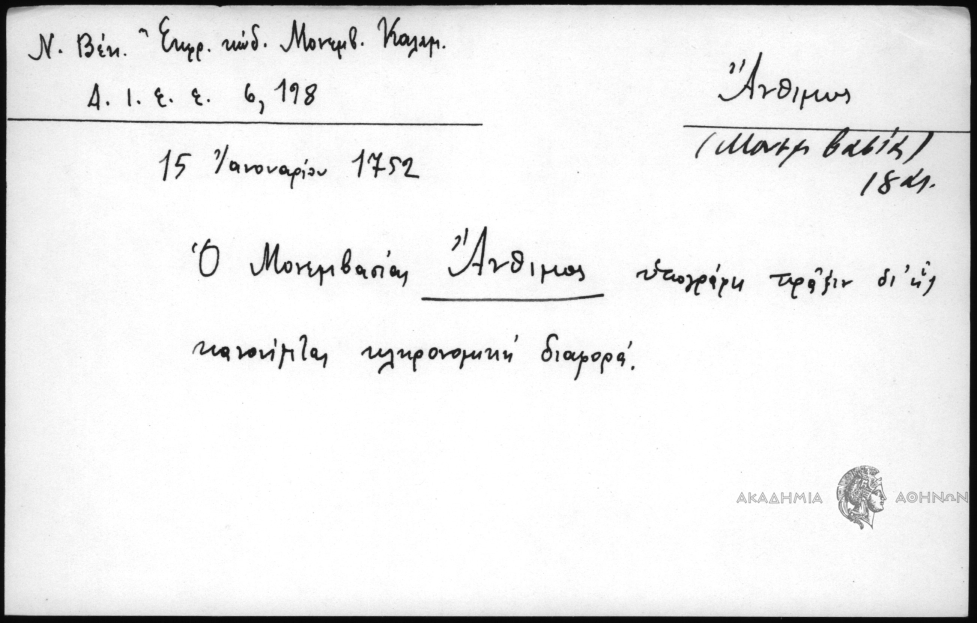 Ν. Βέη. Ἐκφρ. κώδ. Μονεμβ. Καλαμ.
Δ. Ι. Ε. Ε. 6, 198
Ἄνθιμος
(Μονεμβασίας)
18 αἰ.
15 Ἰανουαρίου 1752
Ὁ Μονεμβασίας Ἄνθιμος ὑπογράφει πρᾶξιν δι' ἧς
κανονίζεται κληρονομική διαφορά.
ΑΚΑΔΗΜΙΑ ΑΘΗΝΩΝ